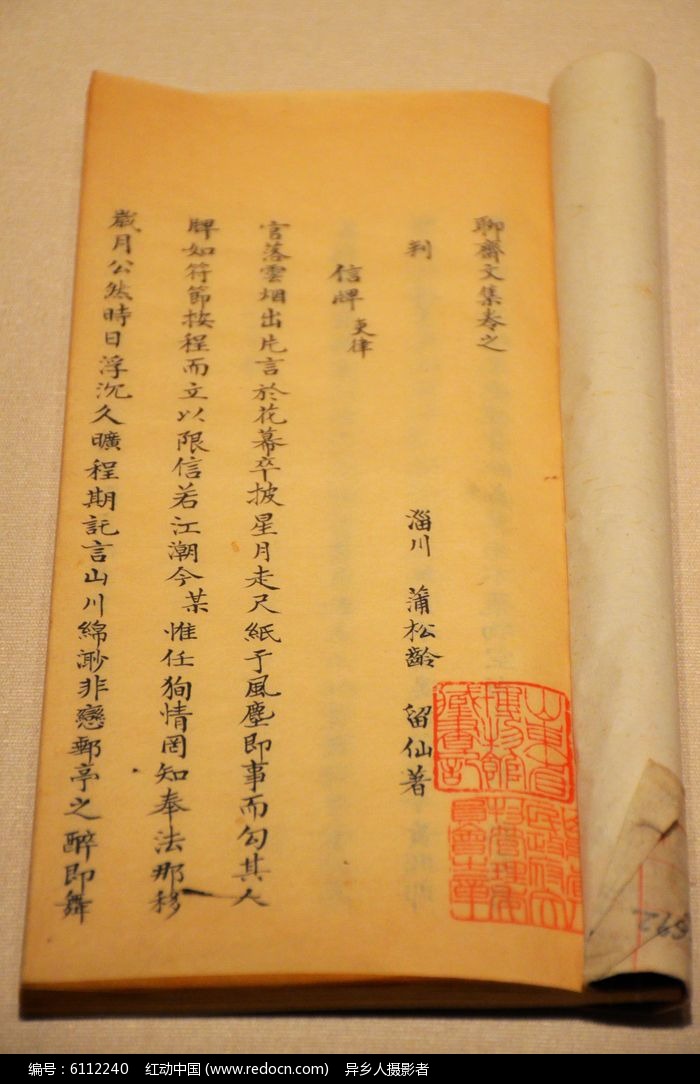 聊齋文集卷之
判
淄川 蒲松齡 留仙著
信牌 吏律
官落雲烟出片言於花幕卒披星月走尺紙于風塵即事而勾其人
牌如符節按程而立以限信若江潮今某惟任狥情罔知奉法那移
歲月公然時日浮沉久曠程期託言山川綿渺非戀郵亭之醉即舞
山東省
博物館
藏書記
592
编号：6112240 红动中国 (www.redocn.com) 异乡人摄影者